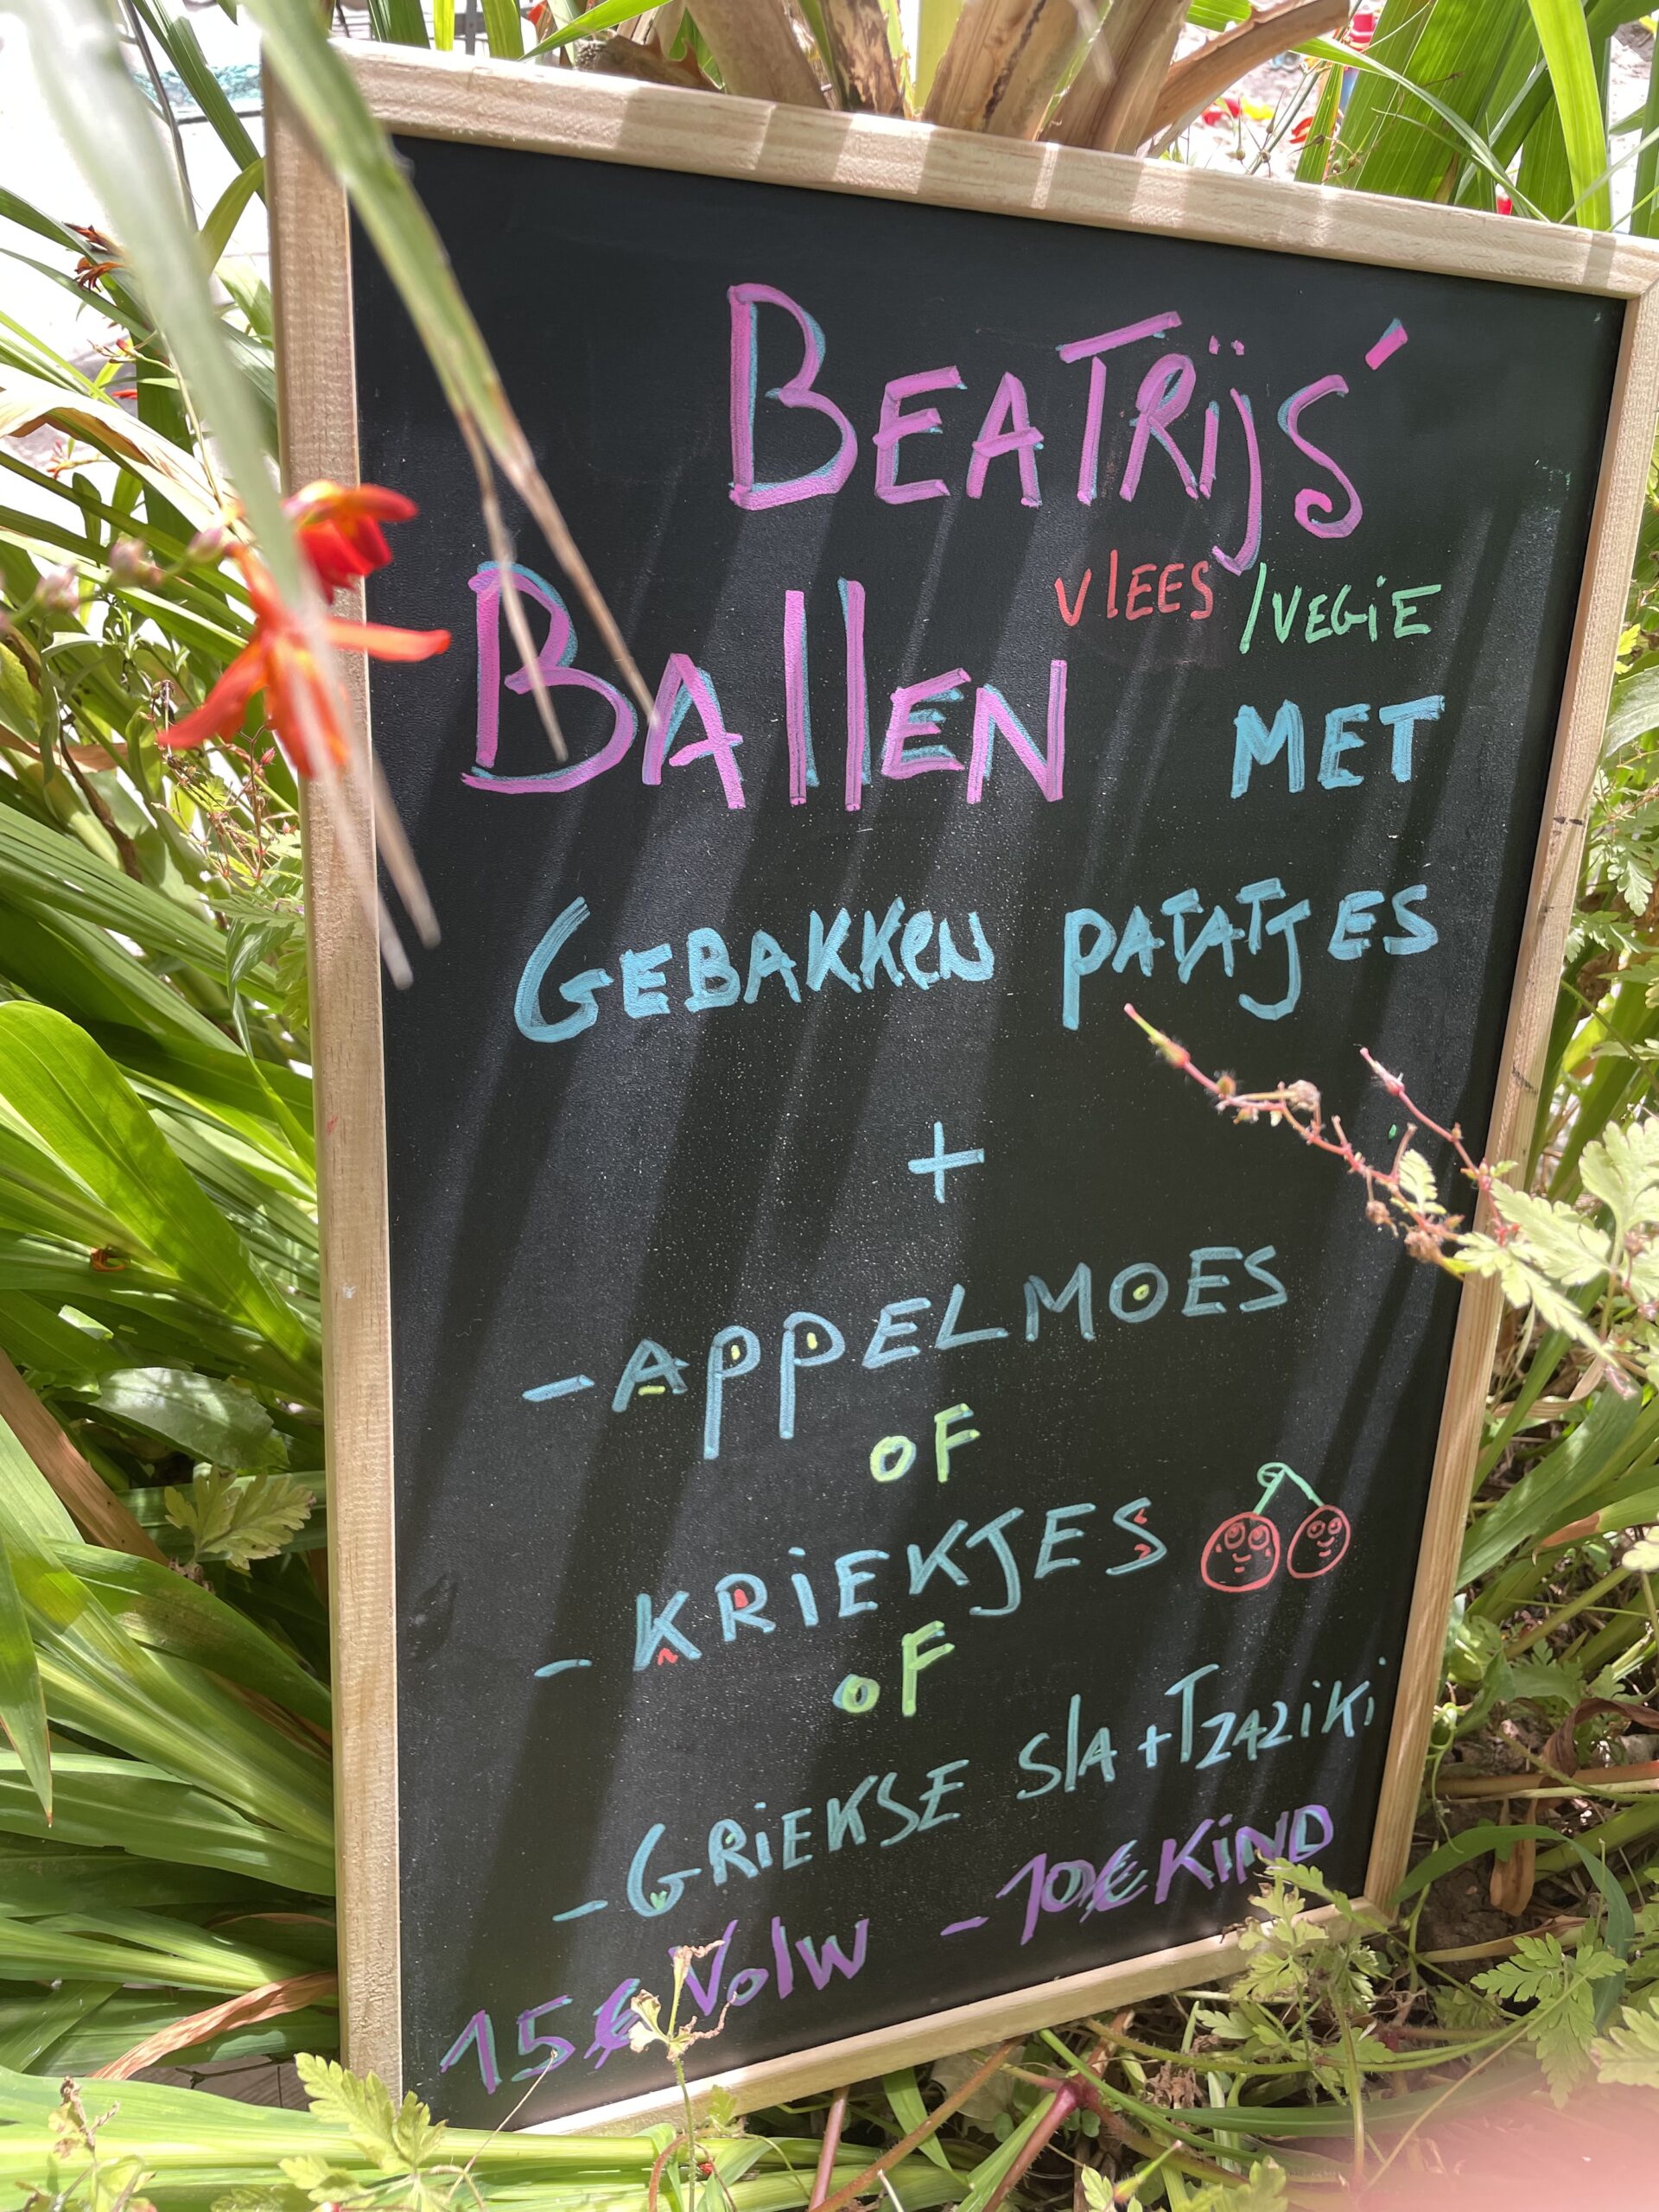 BEATRIJS'
BALLEN VLEES /VEGIE MET
GEBAKKEN PATATJES
+
- APPELMOES
OF
- KRIEKJES
OF
- GRIEKSE SLA + TZAZIKI
15€ VOLW - 10€ KIND